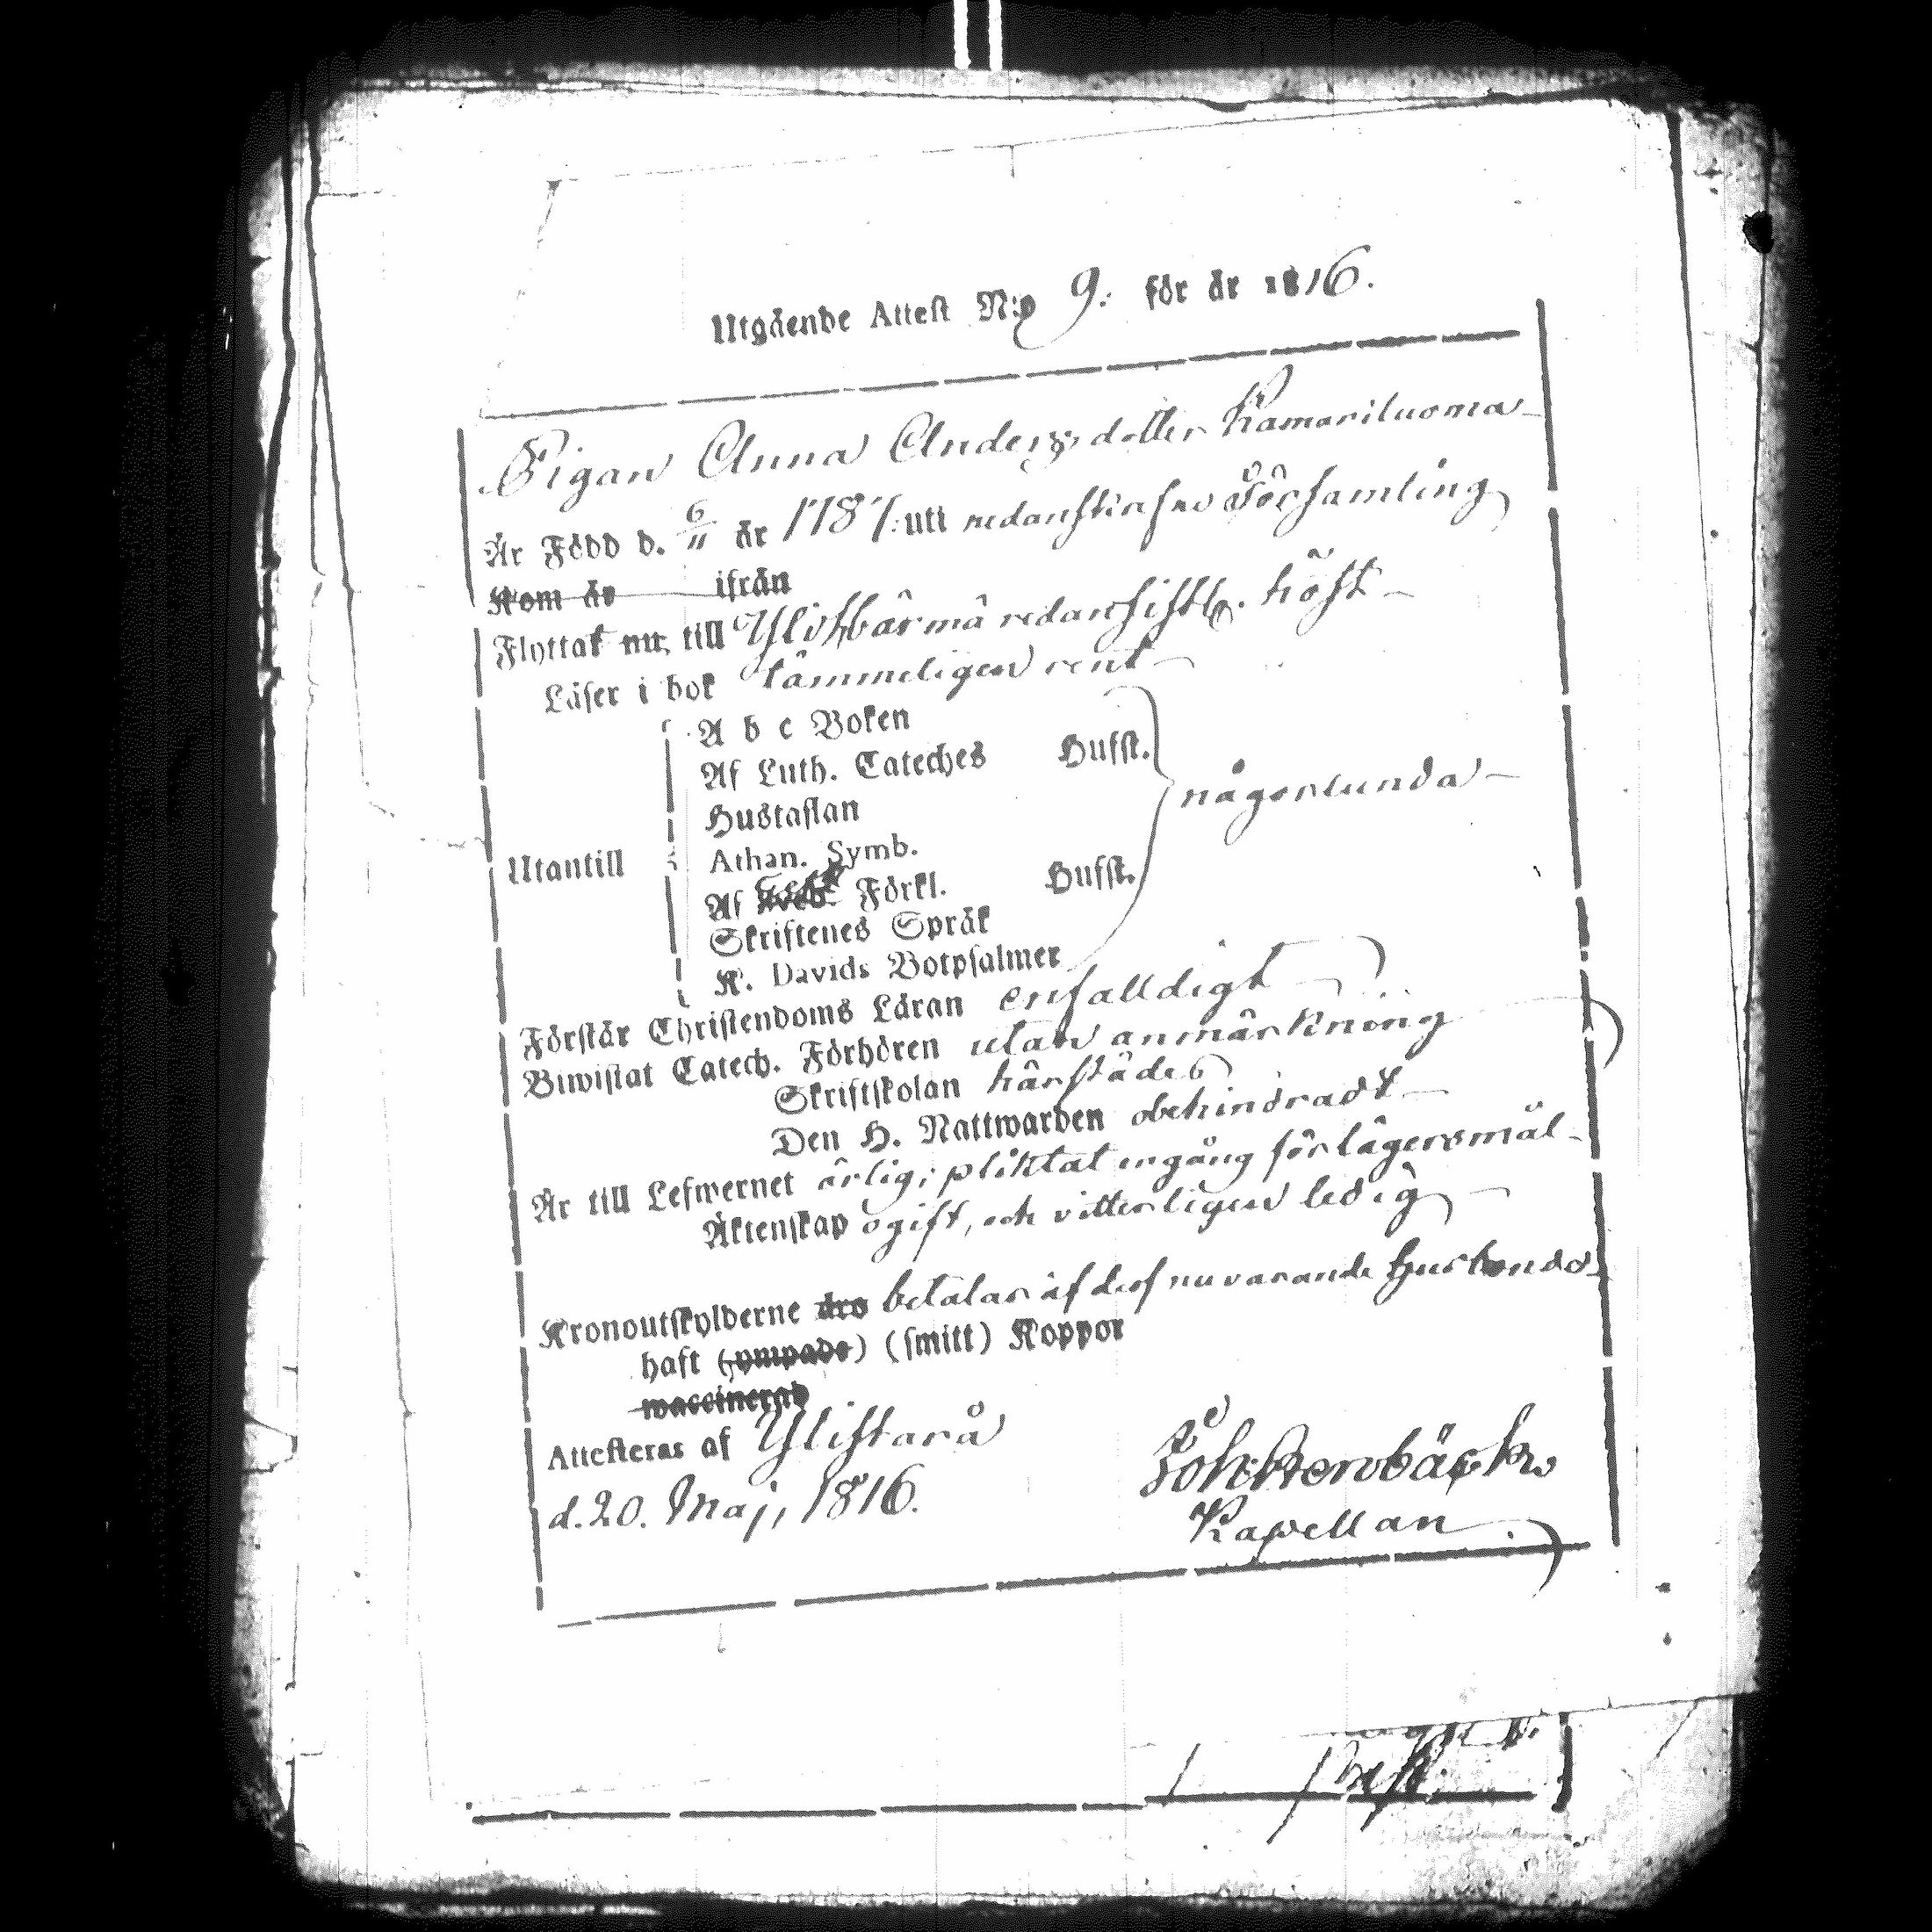 Utgående Attest N:o 9. för år 1816.
Pigan Anna Andersdotter Kamariluoma
Är Född d. 6/11 år 1787. uti nedanskrefne Församling
Kom år ifrån
Flyttat nu, till Ylihärmä redan sistl. höst
Läser i bok tämmeligen rent
A b c Boken
Af Luth. Cateches Hufst.
Hustaflan
någorlunda
Utantill
Athan. Symb.
Af Förkl. Hufst.
Skriftenes Språk
K. Davids Botpsalmer
Förstår Christendoms Läran enfalldigt
Biwistat Catech. Förhören utan anmärkning
Skriftskolan härstädes
Den H. Nattwarden obehindradt
Är till Lefwernet ärlig; pliktat engång för lägersmål
Äktenskap ogift, och vitterligen ledig
Kronoutskylderne äro betalas af dess nuvarande Husbonde
haft (ympade) (smitt) Koppor
waccinerad
Attesteras af Ylistaro
d. 20. Maj, 1816.
Joh:
Kapellan